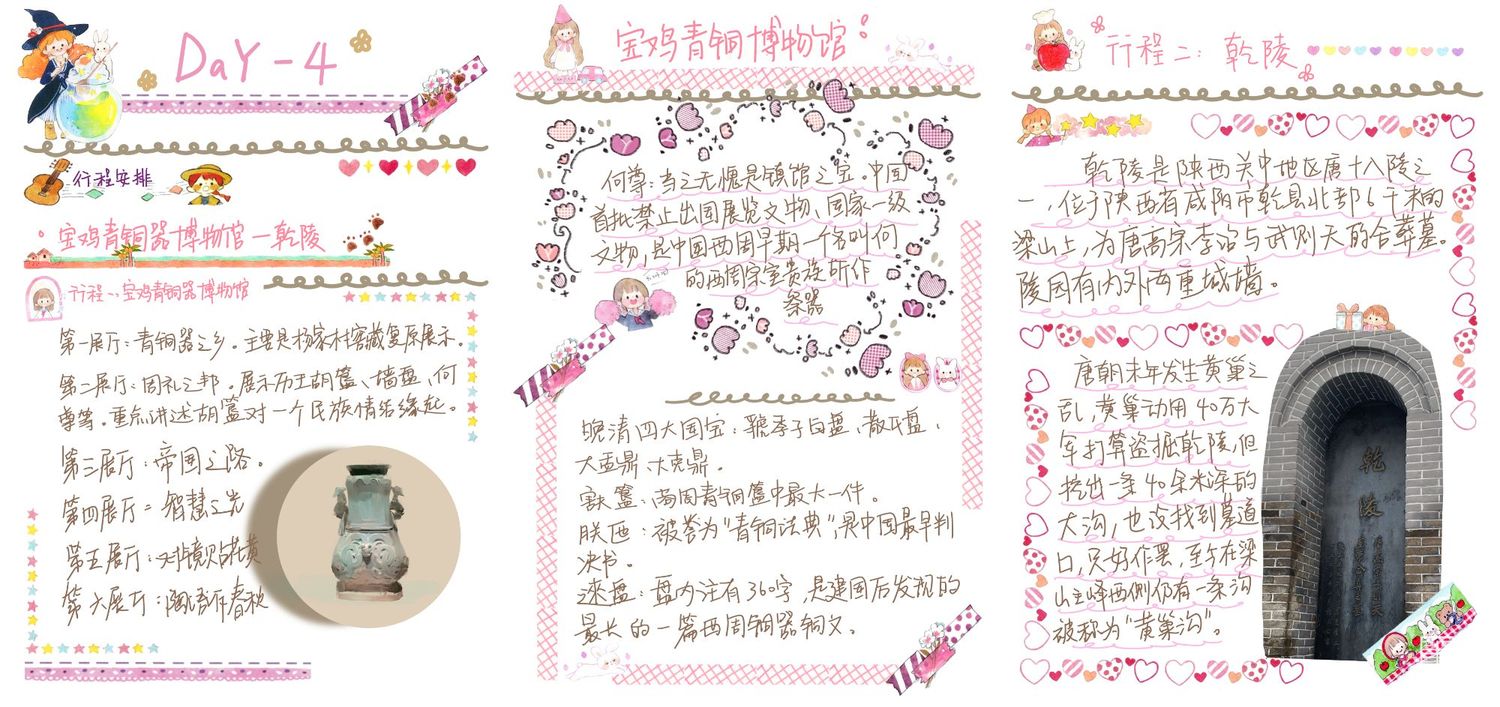 DaY-4
行程安排
宝鸡青铜器博物馆—乾陵
行程一:宝鸡青铜器博物馆
第一展厅:青铜器之乡。主要是杨家村窖藏复原展示。
第二展厅:周礼之邦。展示厉王胡簋、墙盘、何
尊等。重点讲述胡簋对一个民族情结缘起。
第三展厅:帝国之路。
第四展厅:智慧之光
第五展厅:对镜贴花黄
第六展厅:陶语诉春秋
宝鸡青铜博物馆
何尊:当之无愧是镇馆之宝。中国
首批禁止出国展览文物、国家一级
文物,是中国西周早期一个名叫何
的西周宗室贵族所作
祭器
晚清四大国宝:虢季子白盘、散氏盘、
大盂鼎、大克鼎。
㝬簋:商周青铜簋中最大一件。
朕匜:被誉为“青铜法典”,是中国最早判
决书。
逨盘:盘内注有360字,是建国后发现的
最长的一篇西周铜器铜文。
行程二:乾陵
乾陵是陕西关中地区唐十八陵之
一,位于陕西省咸阳市乾县北部6千米的
梁山上,为唐高宗李治与武则天的合葬墓。
陵园有内外两重城墙。
唐朝末年发生黄巢之
乱,黄巢动用40万大
军打算盗掘乾陵,但
挖出一条40余米深的
大沟,也没找到墓道
口,只好作罢,至今在梁
山主峰西侧仍有一条沟
被称为“黄巢沟”。
乾
陵